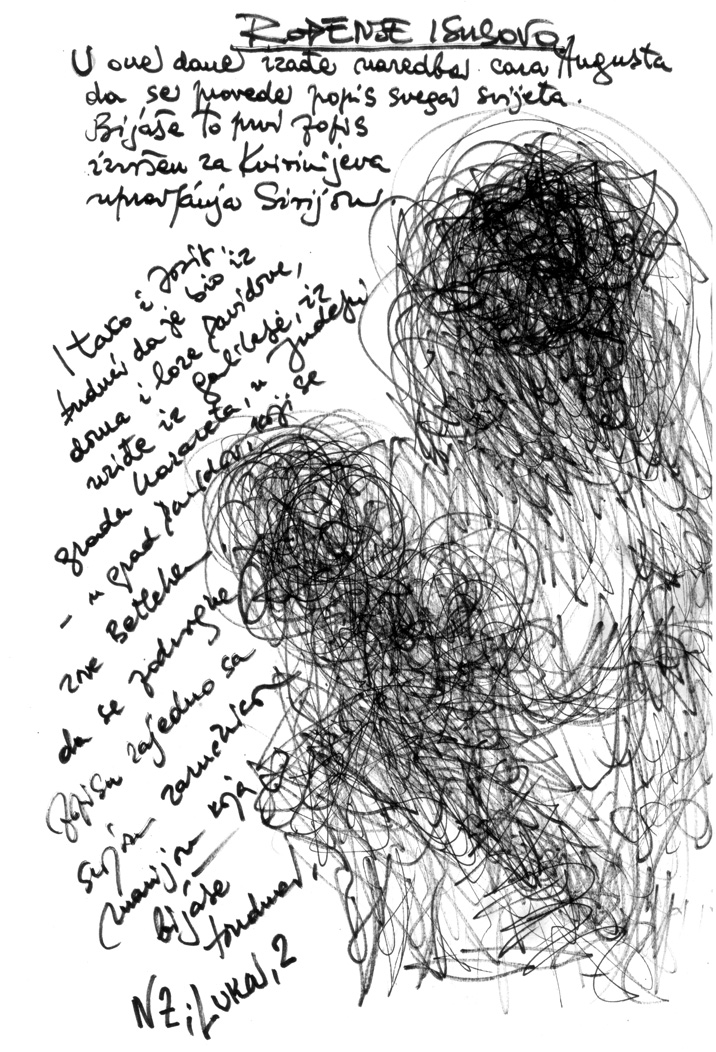 ROĐENJE ISUSOVO
U one dane izađe naredba cara Augusta
da se provede popis svega svijeta.
Bijaše to prvi popis
izvršen za Kvirinijeva
upravljanja Sirijom.
I tako i Josip,
budući da je bio iz
doma i loze Davidove,
uziđe iz Galileje, iz
grada Nazareta, u Judeju
- u grad Davidov, koji se
zove Betlehem
da se podvrgne
popisu zajedno sa
svojom zaručnicom
Marijom koja
bijaše
trudna.
NZ; LUKA, 2